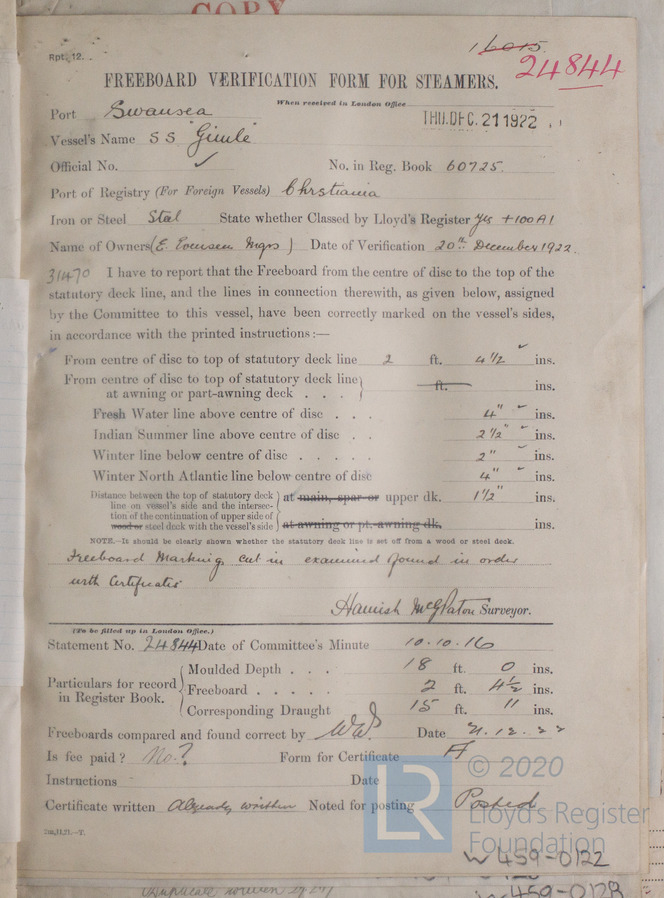 COPY
Rpt. 12.
16015
24844
FREEBOARD VERIFICATION FORM FOR STEAMERS.
When received in London Office
THU. DEC. 21 1922
Port Swansea
Vessel's Name SS "Gimle"
Official No. ✓ No. in Reg. Book 60725.
Port of Registry (For Foreign Vessels) Chrstiania
Iron or Steel Steel State whether Classed by Lloyd's Register Yes +100A1
Name of Owners (E. Evensen Mgrs) Date of Verification 20th December 1922.
31470 I have to report that the Freeboard from the centre of disc to the top of the
statutory deck line, and the lines in connection therewith, as given below, assigned
by the Committee to this vessel, have been correctly marked on the vessel's sides,
in accordance with the printed instructions:—
From centre of disc to top of statutory deck line 2 ft. 4 1/2 ✓ ins.
From centre of disc to top of statutory deck line
at awning or part-awning deck . . . ft. ins.
Fresh Water line above centre of disc . . . 4" ✓ ins.
Indian Summer line above centre of disc . . 2 1/2" ✓ ins.
Winter line below centre of disc . . . . . 2" ✓ ins.
Winter North Atlantic line below centre of disc 4" ✓ ins.
Distance between the top of statutory deck
line on vessel's side and the intersec-
tion of the continuation of upper side of
wood or steel deck with the vessel's side
at main, spar or upper dk. 1 1/2" ins.
at awning or pt. awning dk. ins.
NOTE.—It should be clearly shown whether the statutory deck line is set off from a wood or steel deck.
Freeboard Markings cut in examined found in order
with Certificate
Hamish McG Paton Surveyor.
(To be filled up in London Office.)
Statement No. 24844 Date of Committee's Minute 10.10.16
Particulars for record
in Register Book.
Moulded Depth . . . 18 ft. 0 ins.
Freeboard . . . . . 2 ft. 4 1/2 ins.
Corresponding Draught 15 ft. 11 ins.
Freeboards compared and found correct by Date 21.12.22
Is fee paid? No.? Form for Certificate A
Instructions Date
Certificate written Already written Noted for posting Posted
© 2020
LR
Lloyd's Register
Foundation
W459-0122
W459-0128